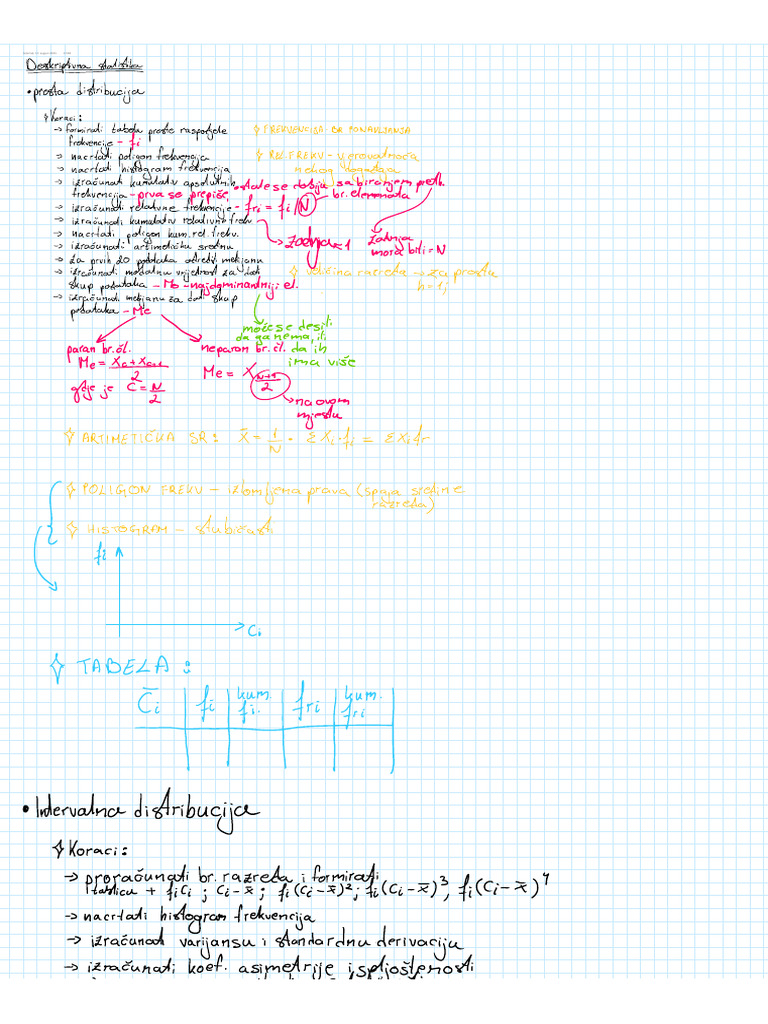 Deskriptivna statistika
• prosta distribucija
Koraci:
→ formirati tabelu proste raspodjele
frekvencije - fi
→ nacrtati poligon frekvencija
→ nacrtati histogram frekvencija
→ izračunati kumulativ apsolutnih
frekvencija - prva se prepiše, ostale se dobiju sabiranjem preth.
→ izračunati relativne frekvencije - fri = fi/N
br. elemenata
→ izračunati kumulativ relativnih frekv.
zadnja = 1
zadnja
mora biti = N
→ nacrtati poligon kum. rel. frekv.
→ izračunati aritmetičku sredinu
→ za prvih 20 podataka odrediti medijanu
→ izračunati modalnu vrijednost za dati
skup podataka - Mo - najdominantniji el.
→ izračunati medijanu za dati skup
podataka - Me
FREKVENCIJA - BR. PONAVLJANJA
REL. FREKV - vjerovatnoća
nekog događaja
veličina razreda → za prostu
h = 1;
može se desiti
da ga nema, ili
da ih
ima više
paran br. čl.
Me = Xc + Xc+1 / 2
gdje je C = N/2
neparon br. čl.
Me = X N+1/2
→ na ovom
mjestu
ARTIMETIČKA SR: x̄ = 1/N · Σ Xi · fi = Σ Xi fr
POLIGON FREKV - izlomljena prava (spaja sredine
razreda)
HISTOGRAM - stubičasti
fi
Ci
TABELA:
C̄i | fi | kum. fi. | fri | kum. fri
• Intervalna distribucija
Koraci:
→ proračunati br. razreda i formirati
tablicu + fiCi ; Ci-x̄ ; fi(Ci-x̄)²; fi(Ci-x̄)³, fi(Ci-x̄)⁴
→ nacrtati histogram frekvencija
→ izračunati varijansu i standardnu derivaciju
→ izračunati koef. asimetrije i spljoštenosti